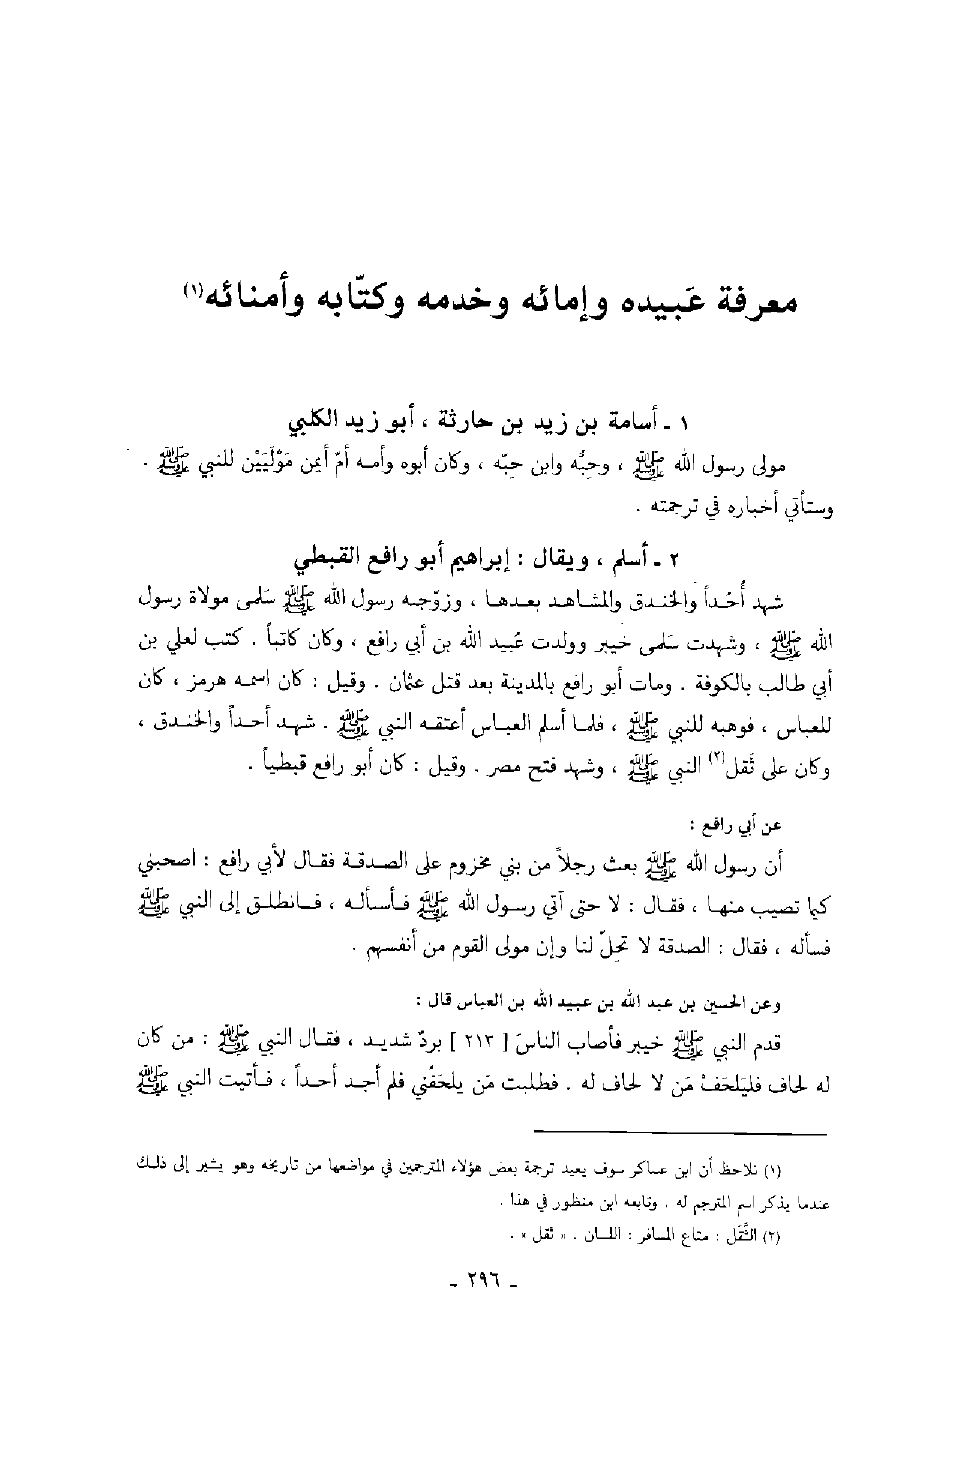 معرفة عَبيده وإمائه وخدمه وكتّابه وأمنائه(١)
١ ـ أسامة بن زيد بن حارثة ، أبو زيد الكلبي
مولى رسول الله ﷺ ، وحِبُّه وابن حِبّه ، وكان أبوه وأمه أمّ أيمن مَوْلَيَيْن للنبي ﷺ .
وستأتي أخباره في ترجمته .
٢ ـ أسلم ، ويقال : إبراهيم أبو رافع القبطي
شهد أُحُداً والخندق والمشاهد بعدها ، وزوّجه رسول الله ﷺ سَلمى مولاة رسول
الله ﷺ ، وشهدت سَلمى خيبر وولدت عُبيد الله بن أبي رافع ، وكان كاتباً . كتب لعلي بن
أبي طالب بالكوفة . ومات أبو رافع بالمدينة بعد قتل عثمان . وقيل : كان اسمه هرمز ، كان
للعباس ، فوهبه للنبي ﷺ ، فلما أسلم العباس أعتقه النبي ﷺ . شهد أحداً والخندق ،
وكان على ثَقل(٢) النبي ﷺ ، وشهد فتح مصر . وقيل : كان أبو رافع قبطياً .
عن أبي رافع :
أن رسول الله ﷺ بعث رجلاً من بني مخزوم على الصدقة فقال لأبي رافع : اصحبني
كما تصيب منها ، فقال : لا حتى آتي رسول الله ﷺ فأسأله ، فانطلق إلى النبي ﷺ
فسأله ، فقال : الصدقة لا تحلّ لنا وإن مولى القوم من أنفسهم .
وعن الحسين بن عبد الله بن عبيد الله بن العباس قال :
قدم النبي ﷺ خيبر فأصاب الناسَ [ ٢١٣ ] بردٌ شديد ، فقال النبي ﷺ : من كان
له لحاف فليَلحَفْ مَن لا لحاف له . فطلبت مَن يلحفُني فلم أجد أحداً ، فأتيت النبي ﷺ
(١) نلاحظ أن ابن عساكر سوف يعيد ترجمة بعض هؤلاء المترجمين في مواضعها من تاريخه وهو يشير إلى ذلك
عندما يذكر اسم المترجم له . وتابعه ابن منظور في هذا .
(٢) الثَّقَل : متاع المسافر : اللسان . « ثقل » .
ـ ٢٩٦ ـ